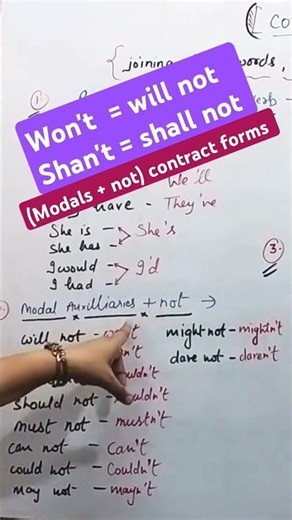 CO
{ joining words,
1.
Won't = will not
Shan't = shall not
(Modals + not) contract forms
We'll
have - They've
She is
She has
She's
I would
I had
I'd
3.
Modal Auxilliaries + not →
will not -
might not - mightn't
dare not - daren't
should not -
must not - mustn't
can not - Can't
could not - Couldn't
may not - mayn't